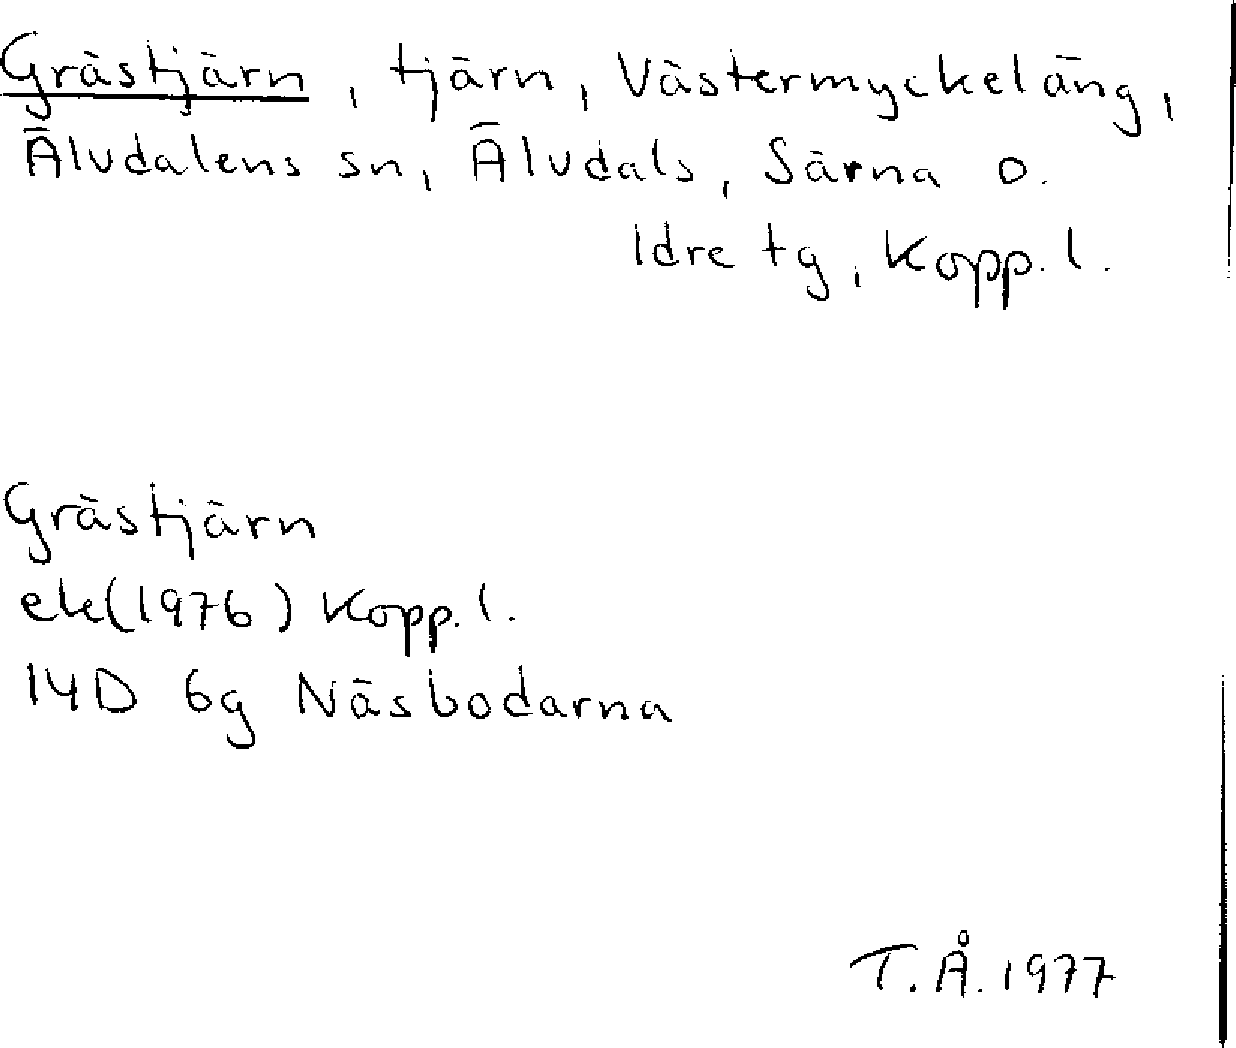 Grästjärn, tjärn, Västermyckeläng,
Älvdalens sn, Älvdals, Särna o.
Idre tg, Kopp. l.
Grästjärn
ek(1976) Kopp. l.
14D 6g Näsbodarna
T.Å. 1977